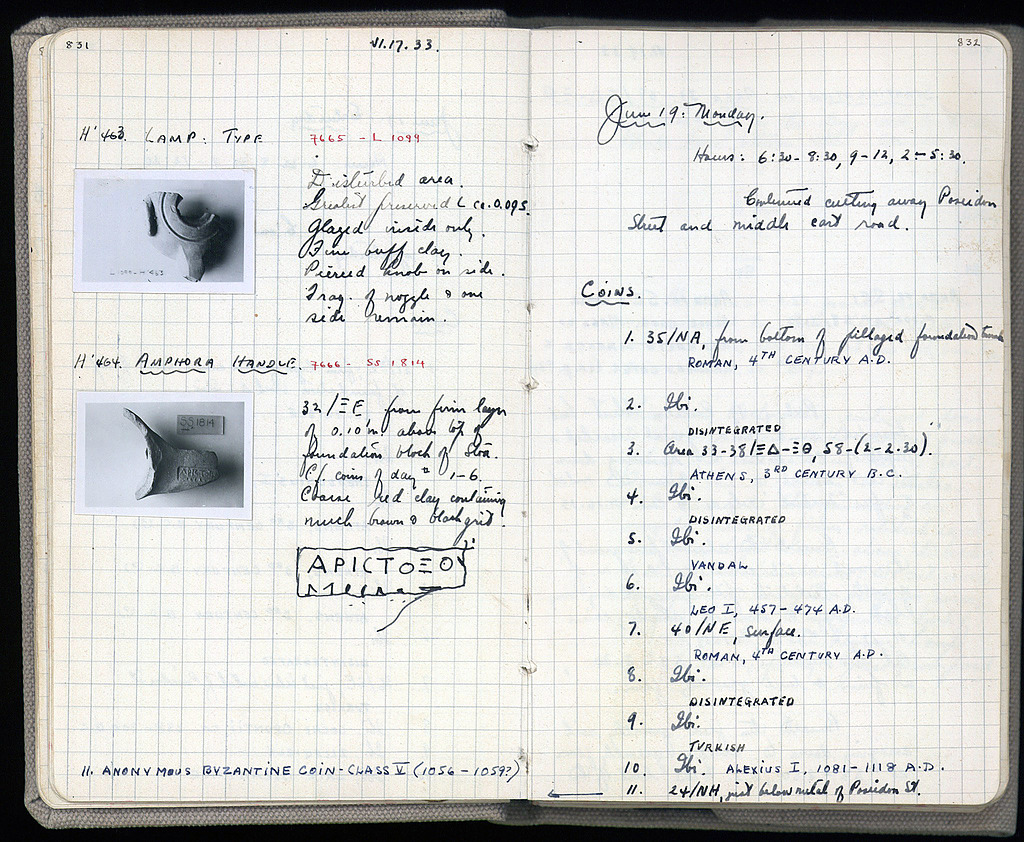 831
VI.17.33.
H' 463. LAMP: TYPE
7665 - L 1099
Disturbed area.
Greatest preserved L ca. 0.095.
Glazed inside only.
Fine buff clay.
Pierced knob on side.
Frag. of nozzle & one
side remain.
H' 464. AMPHORA HANDLE.
7666 - SS 1814
SS 1814
32/ΞΕ, from firm layer
of 0.10 m. above top of
foundation block of Stoa.
Cf. coins of day 1-6.
Coarse red clay containing
much brown & black grit.
ΑΡΙCΤΟΞΟ
11. ANONYMOUS BYZANTINE COIN-CLASS V (1056-1059?)
832
June 19: Monday.
Hours: 6:30-8:30, 9-12, 2-5:30.
Continued cutting away Poseidon
Street and middle east road.
COINS.
1. 35/ΝΑ, from bottom of pillaged foundation trench
ROMAN, 4TH CENTURY A.D.
2. Ibi.
DISINTEGRATED
3. Area 33-38/ΞΔ-ΞΘ, 58-(2-2.30).
ATHENS, 3RD CENTURY B.C.
4. Ibi.
DISINTEGRATED
5. Ibi.
VANDAL
6. Ibi.
LEO I, 457-474 A.D.
7. 40/ΝΕ, surface.
ROMAN, 4TH CENTURY A.D.
8. Ibi.
DISINTEGRATED
9. Ibi.
TURKISH
10. Ibi. ALEXIUS I, 1081-1118 A.D.
11. 24/ΝΗ, just below metal of Poseidon St.